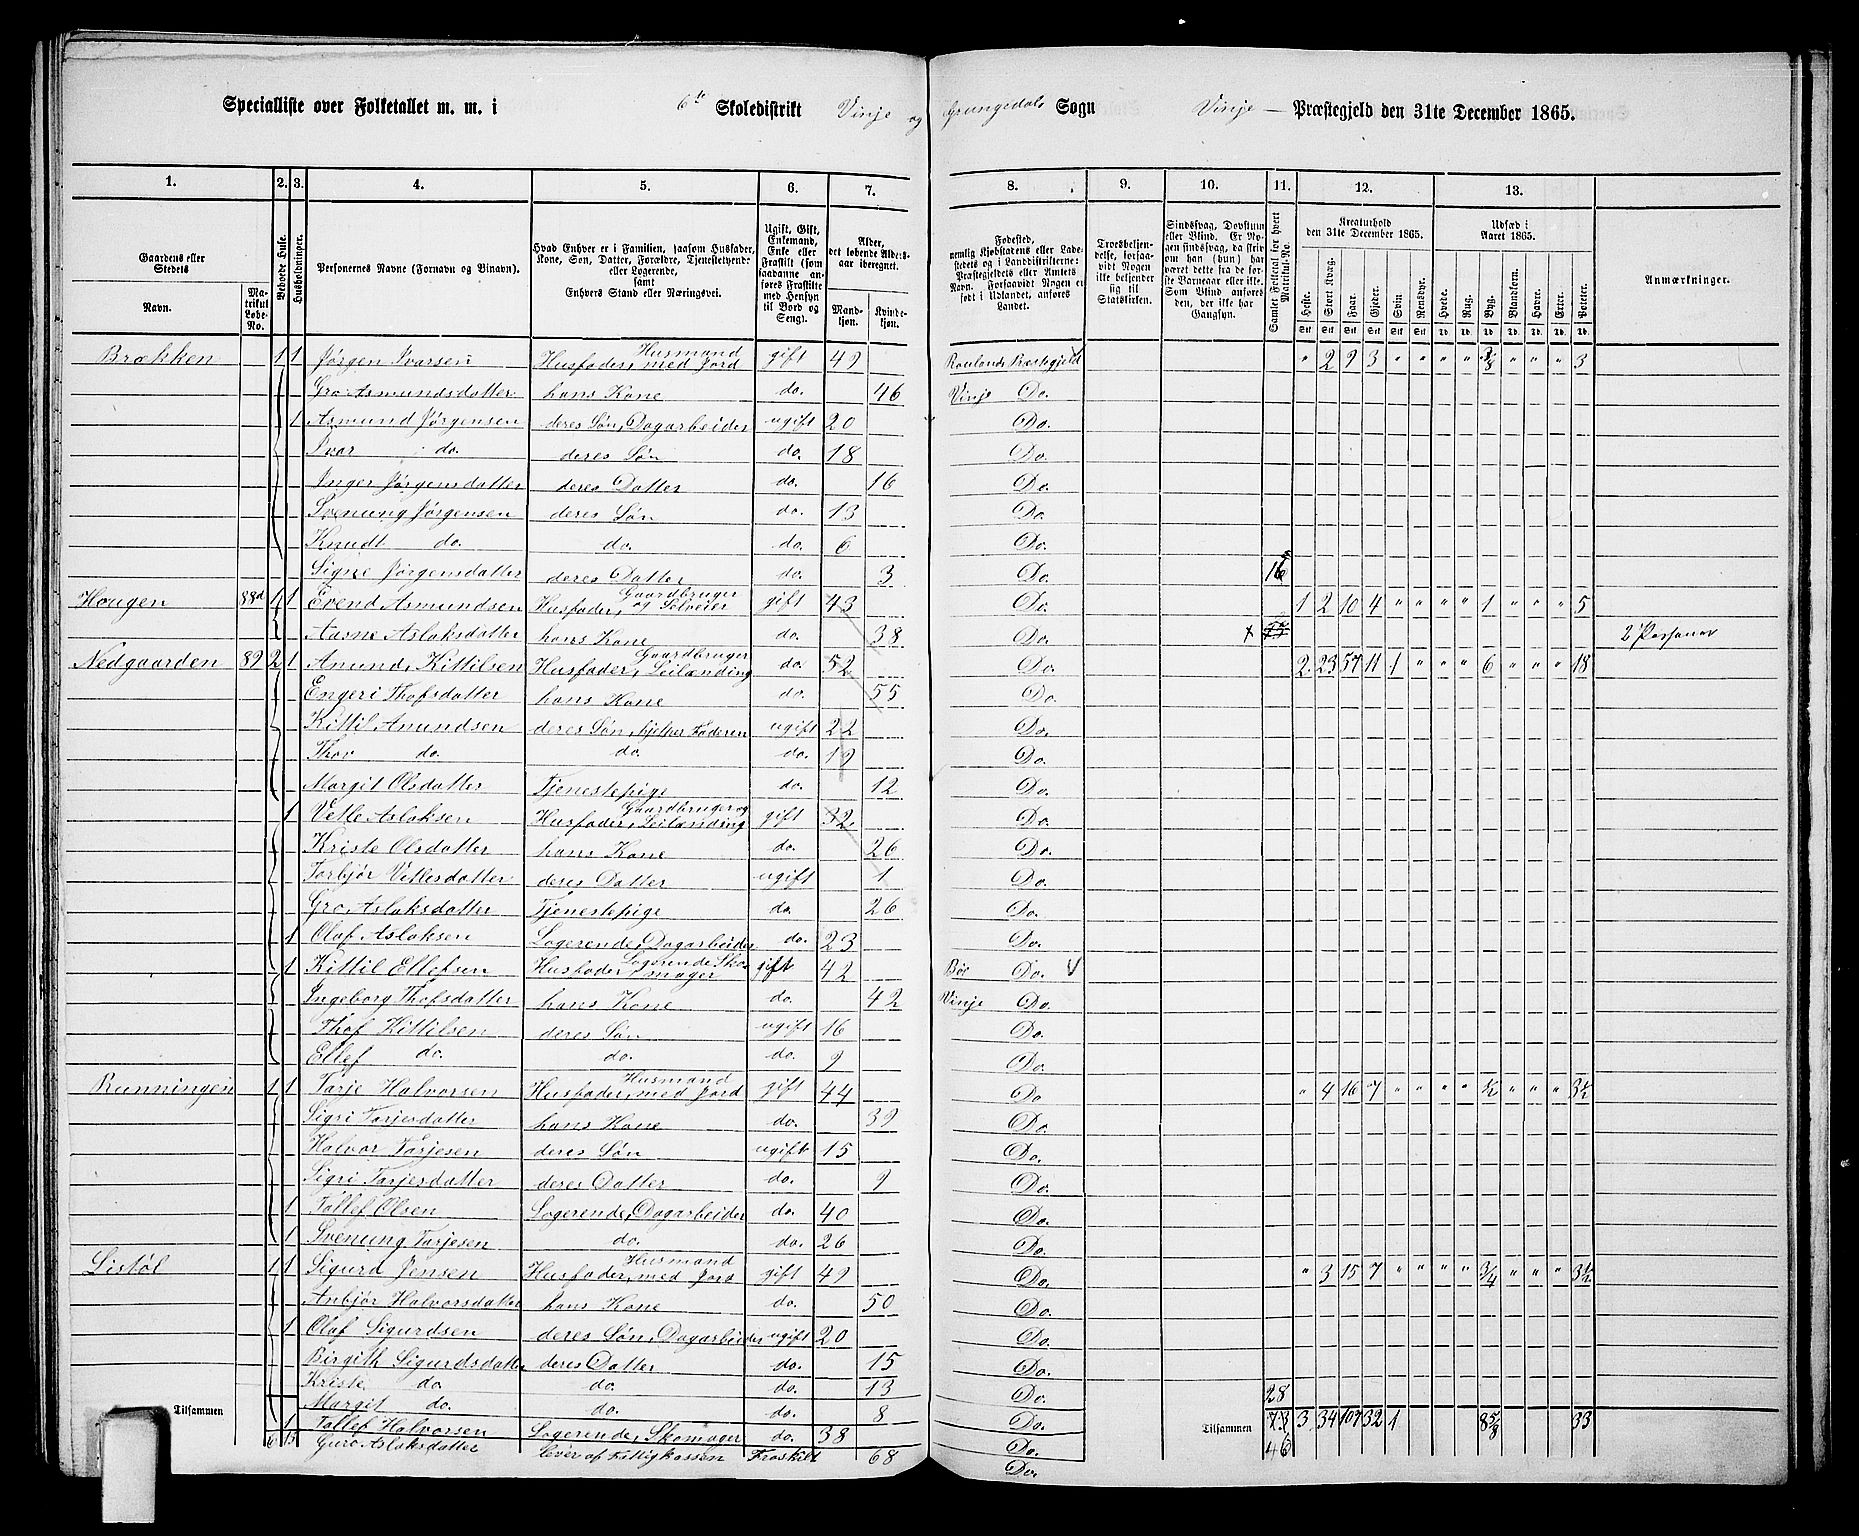 Specialliste over Folketallet m. m. i 6te Skoledistrikt Vinje og Grungedals Sogn Vinje Præstegjeld den 31te December 1865.
1. 2. 3. 4. 5. 6. 7. 8. 9. 10. 11. 12. 13.
Gaardens eller Stedets
Navn.
Matrikul Løbe-No.
Beboede Huse.
Husholdninger.
Personernes Navne (Fornavn og Binavn).
Hvad Enhver er i Familien, saasom Husfader, Kone, Søn, Datter, Forældre, Tjenestetyende eller Logerende, samt Enhvers Stand eller Næringsvei.
Ugift, Gift, Enkemand, Enke eller Fraskilt (som saadanne anføres Fraskilte med Hensyn til Bord og Seng).
Alder, det løbende Aldersaar iberegnet.
Mandkjøn. Kvindekjøn.
Fødested, nemlig Kjøbstadens eller Ladestedets og i Landdistrikterne: Præstegjeldets eller Amtets Navn. Forsaavidt Nogen er født i Udlandet, anføres Landet.
Troesbekjendelse, forsaavidt Nogen ikke bekjender sig til Statskirken.
Sindssvag, Døvstum eller Blind. Er Nogen sindssvag, da skrives, om han (hun) har været dette fra de første Barneaar eller ikke. Som Blind anføres den, der ikke har Gangsyn.
Samlet Folketal for hvert Matrikul-No.
Kreaturhold den 31te December 1865.
Heste. Stort Kvæg. Faar. Gjeder. Svin. Rensdyr.
Udsæd i Aaret 1865.
Hvede. Rug. Byg. Blandkorn. Havre. Erter. Poteter.
Anmærkninger.
Brækken 1 1 Jørgen Ivarsen Husfader, Husmand med Jord gift 49 Raulands Præstegjeld " 2 9 3 " " " " 3/8 " " " 3
Gro Asmundsdatter hans Kone do. 46 Vinje Do.
1 Asmund Jørgensen deres Søn, Dagarbeider ugift 20 Do.
Ivar do. deres Søn do. 18 Do.
Inger Jørgensdatter deres Datter do. 16 Do.
Svenung Jørgensen deres Søn do. 13 Do.
Knudt do. do. do. 6 Do.
Signe Jørgensdatter deres Datter do. 3 Do.
Hougen 88d 1 1 Evend Asmundsen Husfader, Gaardbruger og Selveier gift 43 Do. 1 2 10 4 " " " " 1 " " " 5
Aasne Aslaksdatter hans Kone do. 38 Do. 2 Personer
Nedgaarden 89 2 1 Anund Kittilsen Husfader, Gaardbruger Leilænding do. 52 Do. 2 23 57 11 1 " " " 6 " " " 18
Engeri Thofsdatter hans Kone do. 55 Do.
Kittil Anundsen deres Søn, hjelper Faderen ugift 22 Do.
Thov do. do. do. 19 Do.
Margit Olsdatter Tjenestepige do. 12 Do.
1 Vetle Aslaksen Husfader, Gaardbruger og Leilænding gift 32 Do.
Kriste Olsdatter hans Kone do. 26 Do.
Torbjør Vetlesdatter deres Datter ugift 1 Do.
Gro Aslaksdatter Tjenestepige do. 26 Do.
1 Olaf Aslaksen Logerende, Dagarbeider do. 23 Do.
1 Kittil Ellefsen Husfader, Logerende Skomager gift 42 Bøe Do.
Ingeborg Thofsdatter hans Kone do. 42 Vinje Do.
Thof Kittilsen deres Søn ugift 16 Do.
Ellef do. do. do. 9 Do.
Runningen 1 1 Tarje Halvorsen Husfader, Husmand med Jord gift 44 Do " 4 16 7 " " " " 1/2 " " " 3 1/2
Sigri Tarjesdatter hans Kone do. 39 Do.
Halvor Tarjesen deres Søn ugift 15 Do.
Sigri Tarjesdatter deres Datter do. 9 Do.
1 Tollef Olsen Logerende, Dagarbeider do. 40 Do.
1 Svenung Tarjesen do. do. 26 Do.
Listøl 1 1 Sigurd Jensen Husfader, Husmand med Jord gift 49 Do. " 3 15 7 " " " " 3/4 " " " 3 1/2
Anbjør Halvorsdatter hans Kone do. 50 Do.
1 Olaf Sigurdsen deres Søn, Dagarbeider ugift 20 Do.
Birgith Sigurdsdatter deres Datter do. 15 Do.
Kriste do. do. do. 13 Do. 28
Margit do. do. do. 8 Do.
Tilsammen 6 15 Tilsammen 73 3 34 107 32 1 8 5/8 33
1 Tollef Halvorsen Logerende, Skomager do. 38 Do. 46
Guro Aslaksdatter lever af Fattigkassen Fraskilt 68 Do.